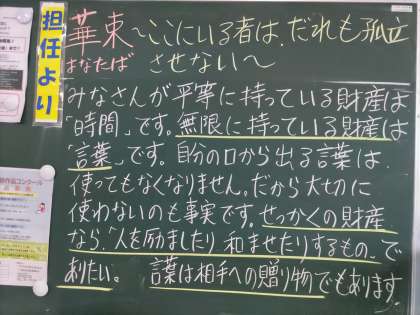 担任より
華束～ここにいる者は、だれも孤立
はなたば させない～
みなさんが平等に持っている財産は
「時間」です。無限に持っている財産は
「言葉」です。自分の口から出る言葉は、
使ってもなくなりません。だから大切に
使わないのも事実です。せっかくの財産
なら、「人を励ましたり和ませたりするもの」で
ありたい。 言葉は相手への贈り物でもあります。
作品コンクール